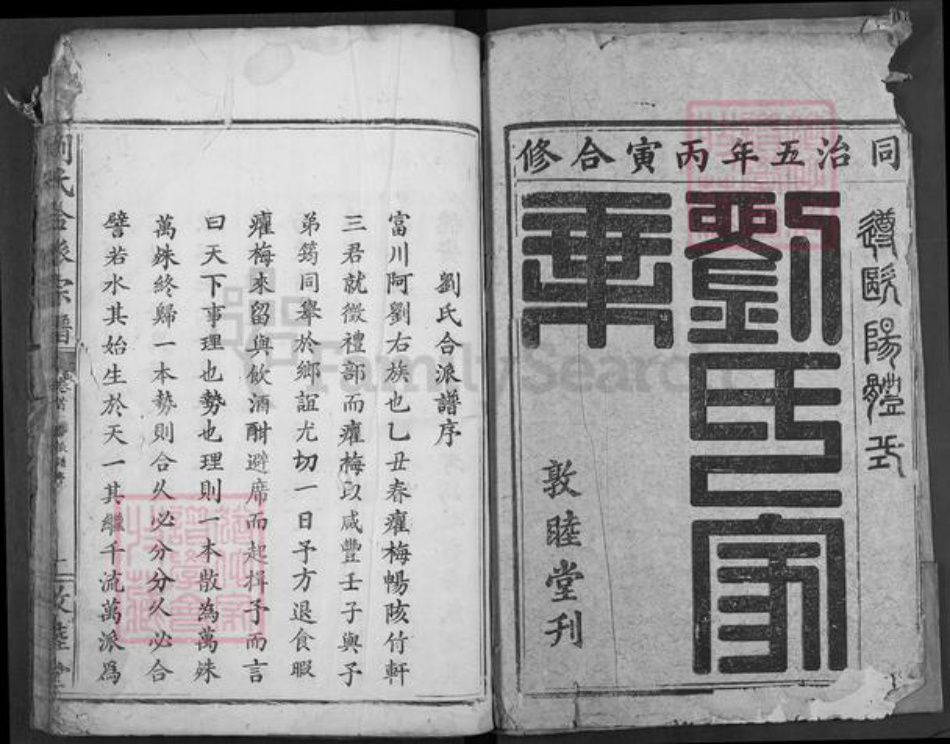 同治五年丙寅合修
遵歐陽體式
劉氏家
乘
敦睦堂刊
劉氏合派譜序
富川阿劉右族也乙丑春癯梅暢陔付軒
三君就徵禮部而癯梅以咸豐壬子與予
弟筠同舉於鄉誼尤切一日予方退食暇
癯梅來留與飲酒酣避席而起揖予而言
曰天下事理也勢也理則一本散為萬殊
萬殊終歸一本勢則合久必分分久必合
譬若水其始生於天一其繼千流萬派為
劉氏合派宗譜
FamilySearch